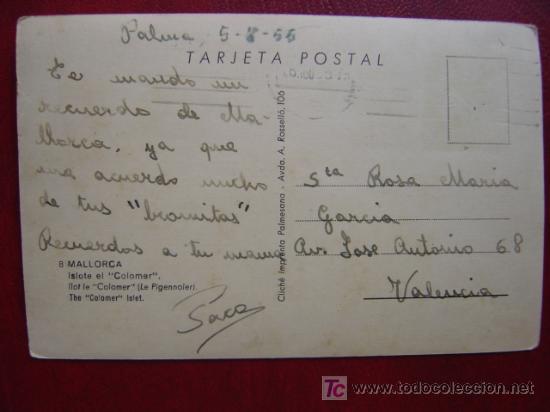 Palma 5-8-55
TARJETA POSTAL
Te mando un
recuerdo de Ma-
llorca, ya que
me acuerdo mucho
de tus "bromitas"
Recuerdos a tu mama
8 MALLORCA
Islote el "Colomer".
Ilot le "Colomer" (Le Pigeonnier).
The "Colomer" Islet.
Cliché Imprenta Palmesana - Avda. A. Rosselló, 106
Sta Rosa Maria
Garcia
Av. Jose Antonio 68
Valencia
TC todocoleccion
www.todocoleccion.net